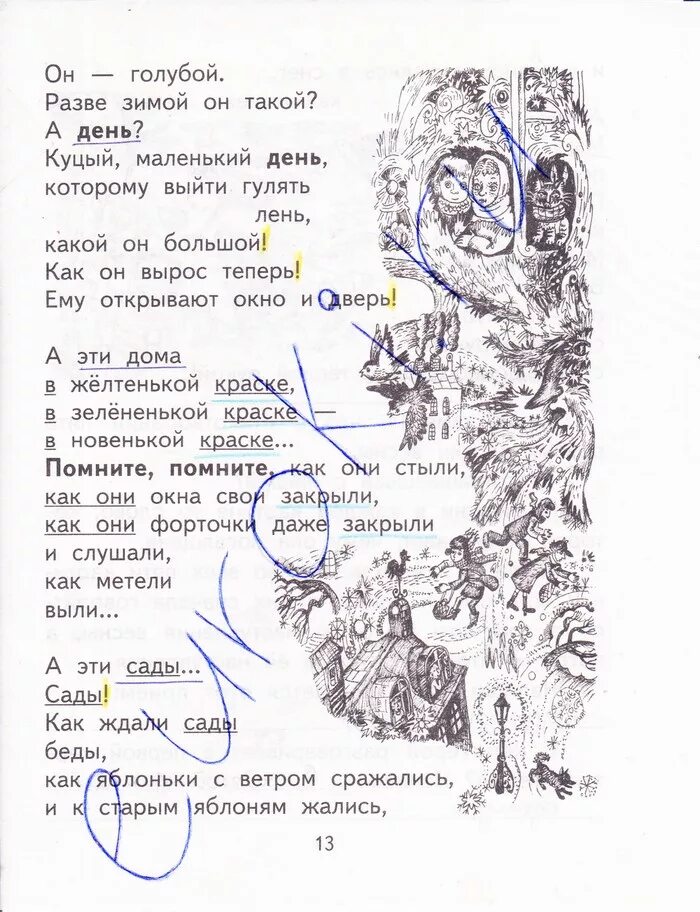 Он — голубой.
Разве зимой он такой?
А день?
Куцый, маленький день,
которому выйти гулять
лень,
какой он большой!
Как он вырос теперь!
Ему открывают окно и дверь!
А эти дома
в жёлтенькой краске,
в зелёненькой краске —
в новенькой краске...
Помните, помните, как они стыли,
как они окна свои закрыли,
как они форточки даже закрыли
и слушали,
как метели
выли...
А эти сады...
Сады!
Как ждали сады
беды,
как яблоньки с ветром сражались,
и к старым яблоням жались,
13